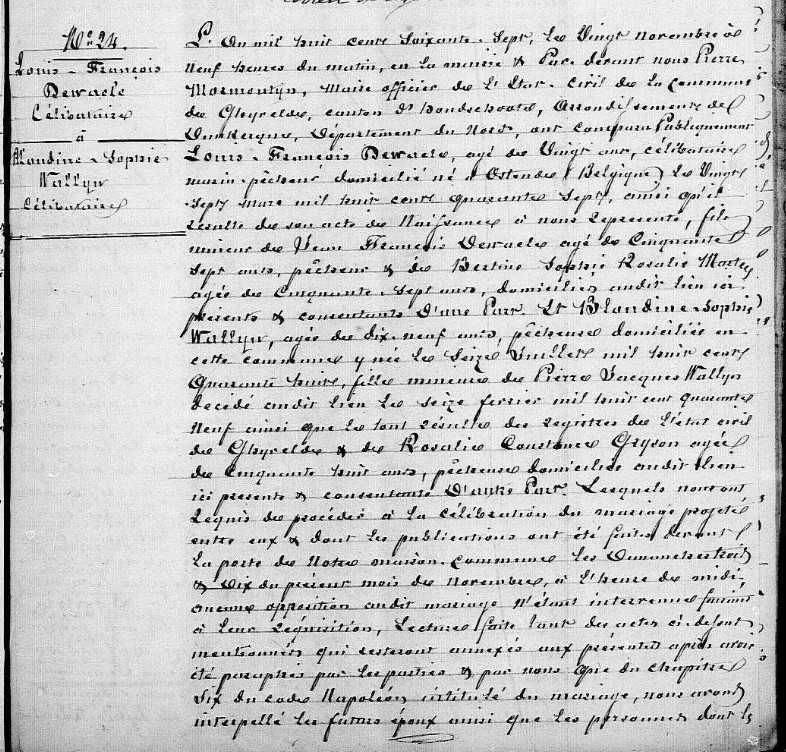 N° 24.
Louis-François
Dewaele
Célibataire
à
Blandine-Sophie
Wallyn
Célibataire
L'An mil huit cent soixante-sept, le Vingt novembre à
neuf heures du matin, en la mairie & Par devant nous Pierre
Maire officier de l'Etat-Civil de la Commune
de Ghyvelde, canton d'hondschoote, Arrondissement de
Dunkerque, Département du Nord, ont comparu Publiquement
Louis-François Dewaele, agé de Vingt ans, célibataire
marin-pêcheur domicilié né à Ostende (Belgique) le Vingt
Sept mars mil huit cent quarante sept, ainsi qu'il
résulte de son acte de Naissance à nous représenté, fils
mineur de Jean François Dewaele agé de Cinquante
Sept ans, pêcheur & de Bertine Sophie Rosalie
agée de Cinquante-Sept ans, domiciliés audit lieu ici
présents & consentants d'une Part. Et Blandine-Sophie
Wallyn, agée de dix-neuf ans, pêcheuse domiciliée en
cette commune y née le Seize Juillet mil huit cent
Quarante huit, fille mineure de Pierre Jacques Wallyn
décédé audit lieu le seize fevrier mil huit cent quarante
Neuf ainsi que le tout résulte des registres de l'état civil
de Ghyvelde & de Rosalie Constance Gryson agée
de Cinquante huit ans, pêcheuse domiciliée audit lieu
ici présente & consentante D'autre Part. Lesquels nous ont
requis de procéder à la célébration du mariage projeté
entre eux & dont les publications ont été faites devant
la porte de Notre maison-commune les Dimanches trois
& Dix du présent mois de Novembre, à l'heure de midi,
aucune opposition audit mariage N'étant intervenue faisant
à leur réquisition, Lecture faite tant des actes ci-dessus
mentionnés qui resteront annexés aux présentes après avoir
été paraphés par les parties & par nous que du chapitre
Six du code Napoléon intitulé du mariage, nous avons
interpellé les futurs époux ainsi que les personnes dont le